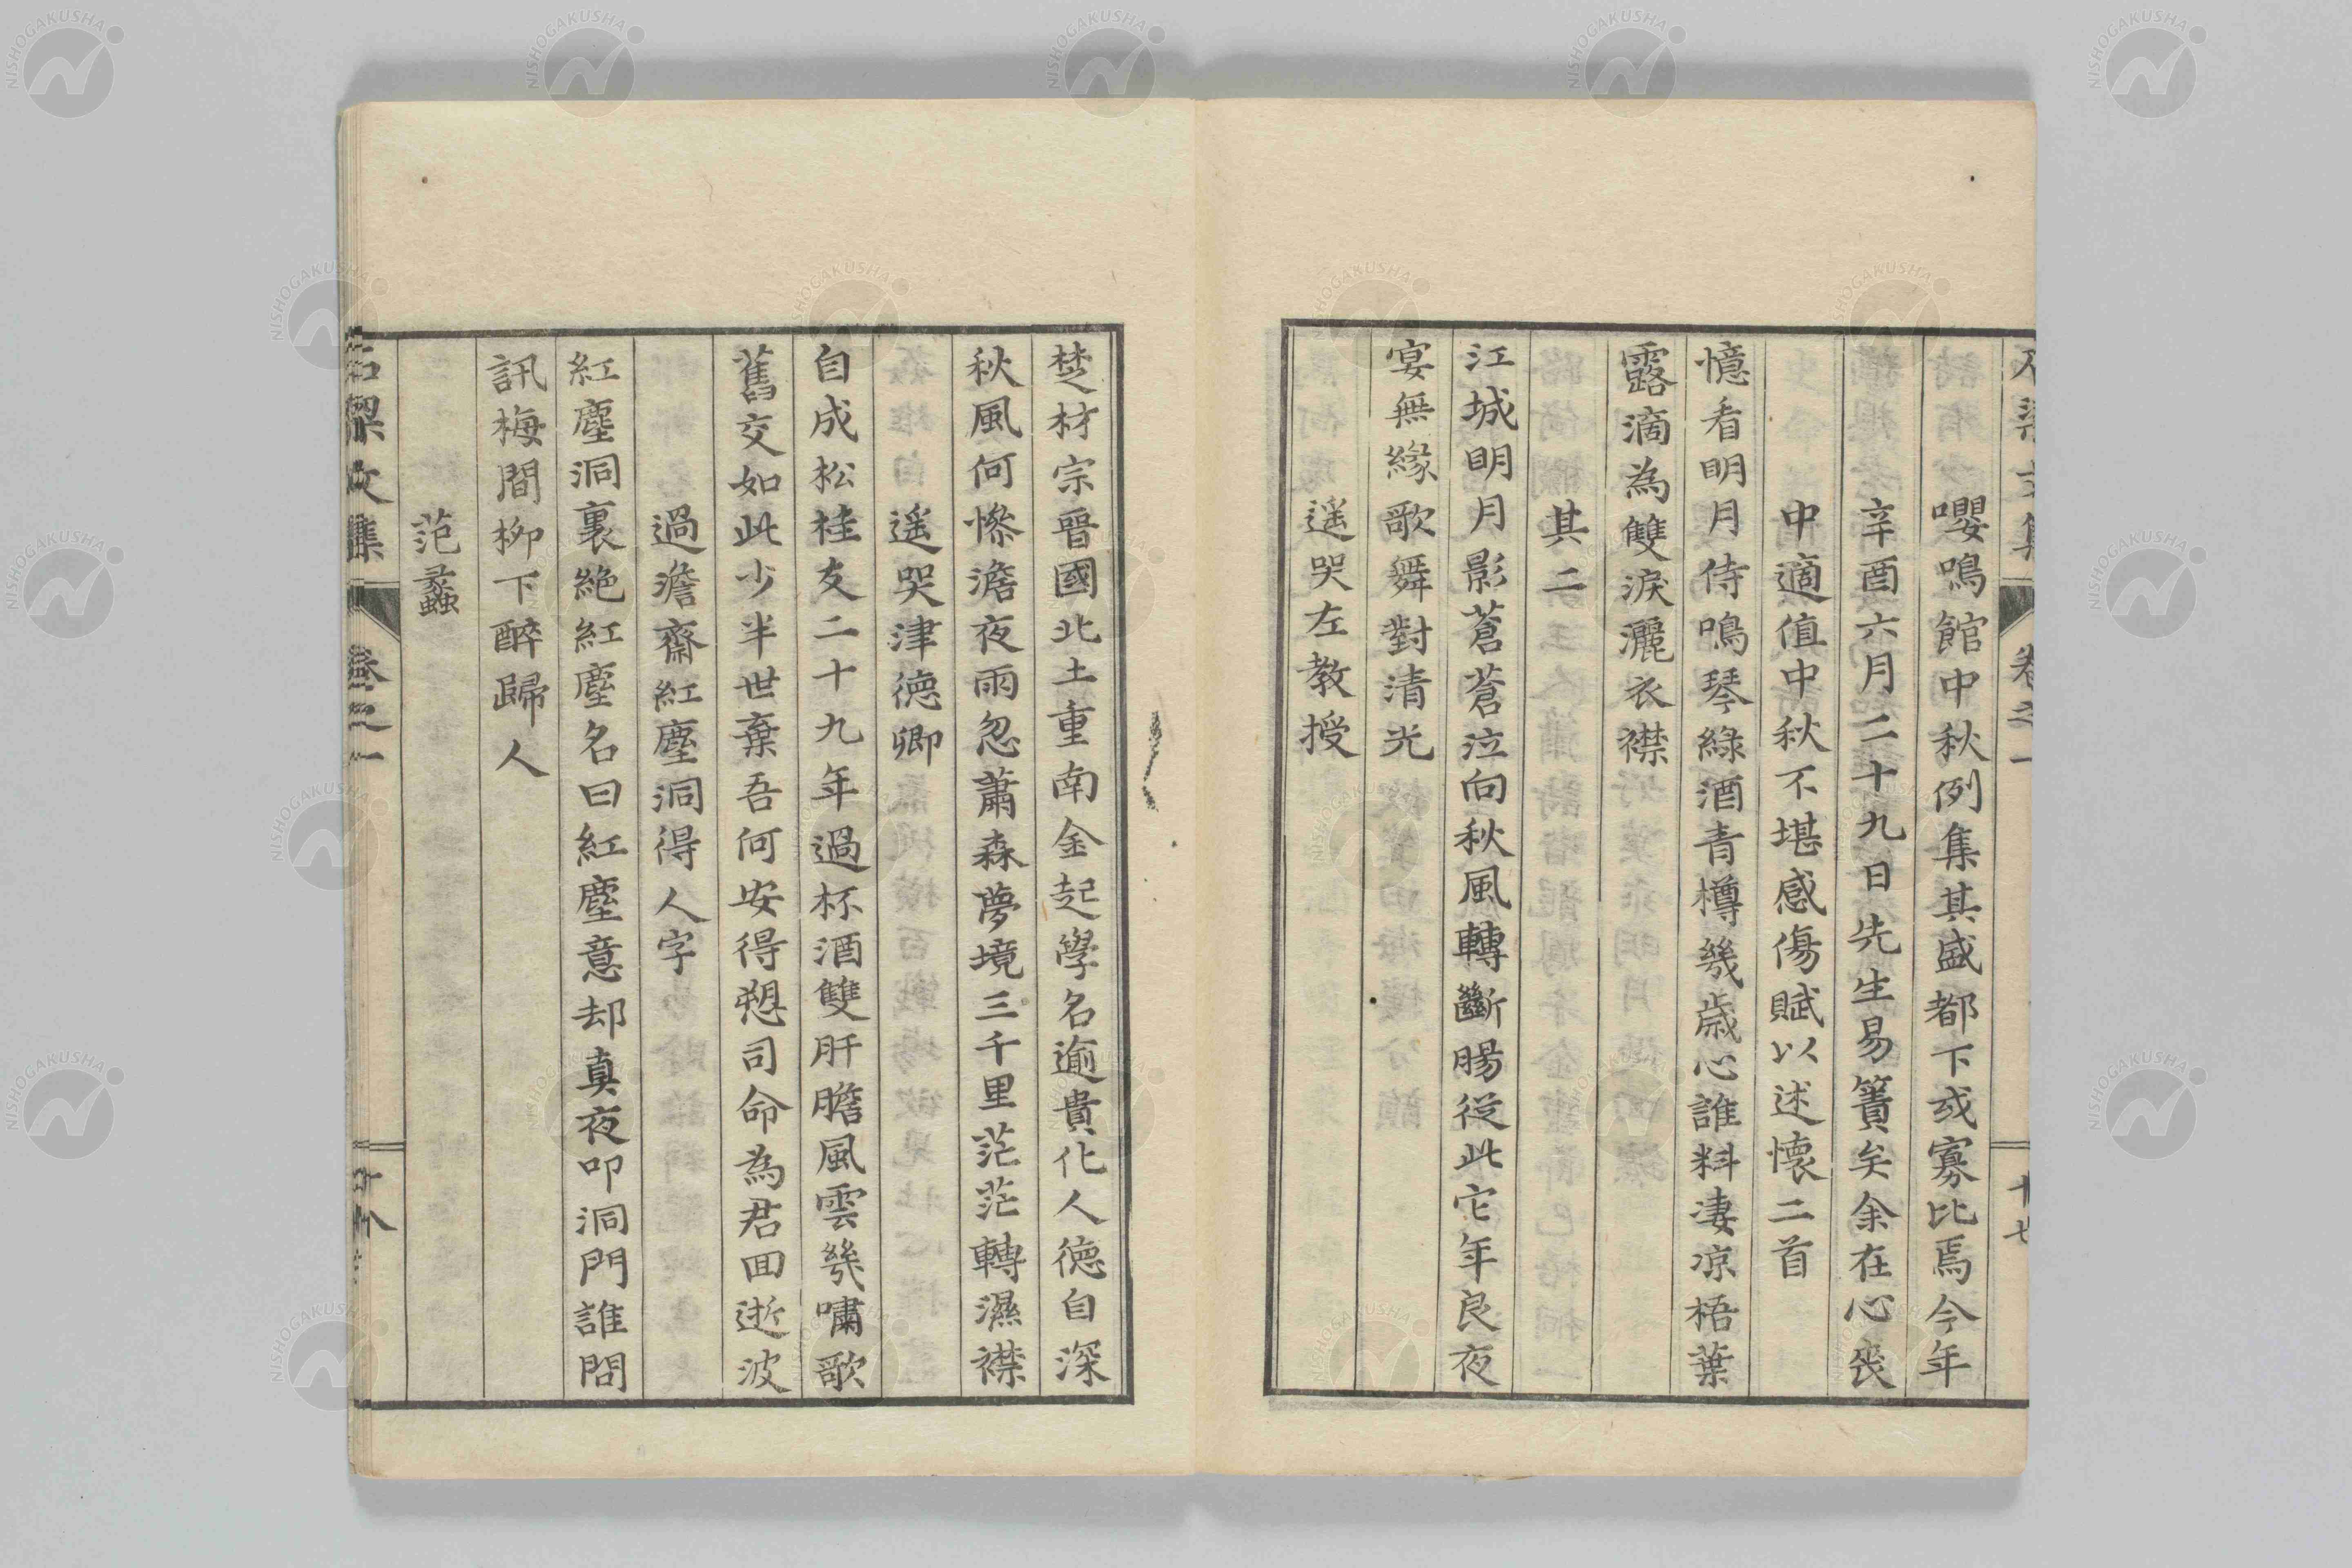 卷之一
十七
嚶鳴館中秋例集其盛都下或寡比焉今年
辛酉六月二十九日先生易簀矣余在心喪
中適值中秋不堪感傷賦以述懷二首
憶看明月侍鳴琴綠酒青樽幾歲心誰料淒凉梧葉
露滴為雙淚灑衣襟
其二
江城明月影蒼蒼泣向秋風轉斷腸從此它年良夜
宴無緣歌舞對清光
遥哭左教授
楚材宗晉國北土重南金起學名逾貴化人德自深
秋風何慘澹夜雨忽蕭森夢境三千里茫茫轉濕襟
遥哭津德卿
自成松桂友二十九年過杯酒雙肝膽風雲幾嘯歌
舊交如此少半世棄吾何安得愬司命為君回逝波
過澹齋紅塵洞得人字
紅塵洞裏絶紅塵名曰紅塵意却真夜叩洞門誰問
訊梅間柳下醉歸人
范蠡
文集
卷之一
十八
NISHOGAKUSHA